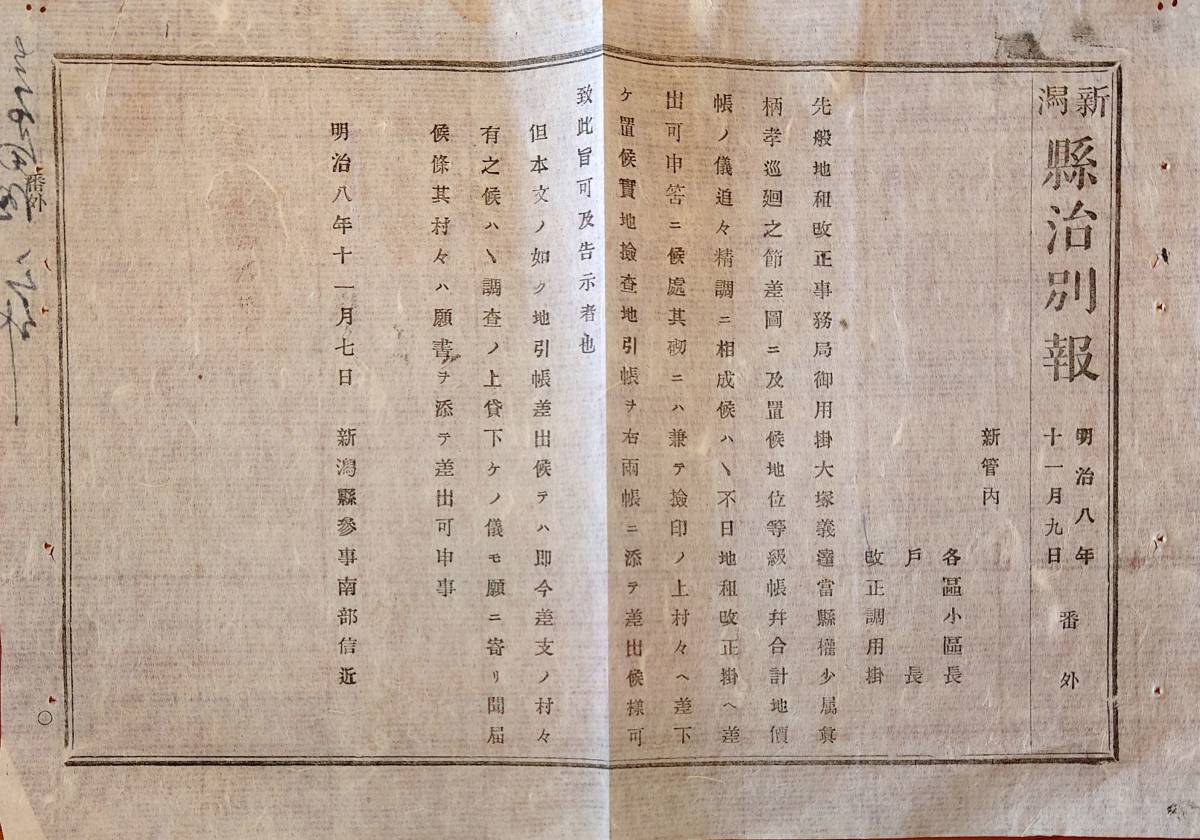 新潟縣治別報
明治八年
十一月九日
番外
新管内
各區小區長
戸長
改正調用掛
先般地租改正事務局御用掛大塚義達當縣權少属眞
柄孝巡廻之節差圖ニ及置候地位等級帳幷合計地價
帳ノ儀追々精調ニ相成候ハヽ不日地租改正掛ヘ差
出可申筈ニ候處其砌ニハ兼テ撿印ノ上村々ヘ差下
ケ置候實地撿査地引帳ヲ右兩帳ニ添テ差出候樣可
致此旨可及告示者也
但本文ノ如ク地引帳差出候テハ即今差支ノ村々
有之候ハヽ調査ノ上貸下ケノ儀モ願ニ寄リ聞届
候條其村々ハ願書ヲ添テ差出可申事
明治八年十一月七日 新潟縣參事南部信近
番外